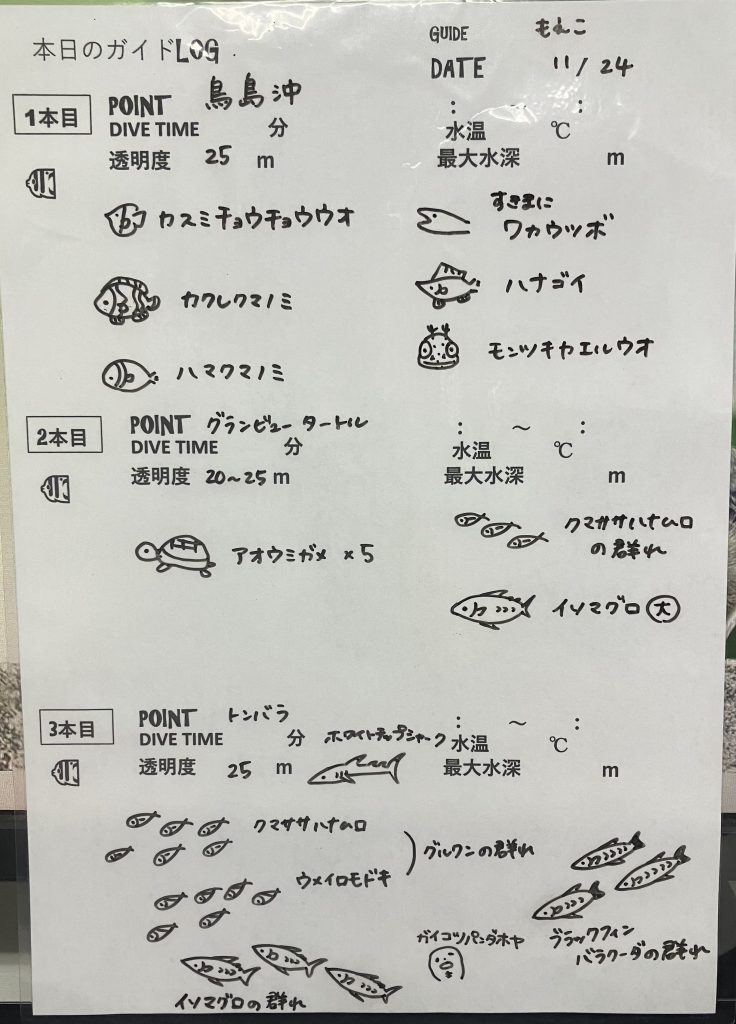 本日のガイドLOG
GUIDE もえこ
DATE 11/24
1本目
POINT 鳥島沖
DIVE TIME 分
: ~ :
水温 ℃
透明度 25 m
最大水深 m
カスミチョウチョウウオ
すきまに
ワカウツボ
カクレクマノミ
ハナゴイ
ハマクマノミ
モンツキカエルウオ
2本目
POINT グランビュー タートル
DIVE TIME 分
: ~ :
水温 ℃
透明度 20~25 m
最大水深 m
アオウミガメ ×5
クマササハナムロ
の群れ
イソマグロ 大
3本目
POINT トンバラ
DIVE TIME 分
: ~ :
水温 ℃
透明度 25 m
最大水深 m
ホワイトチップシャーク
クマササハナムロ
グルクンの群れ
ウメイロモドキ
ガイコツパンダホヤ
ブラックフィン
バラクーダの群れ
イソマグロの群れ